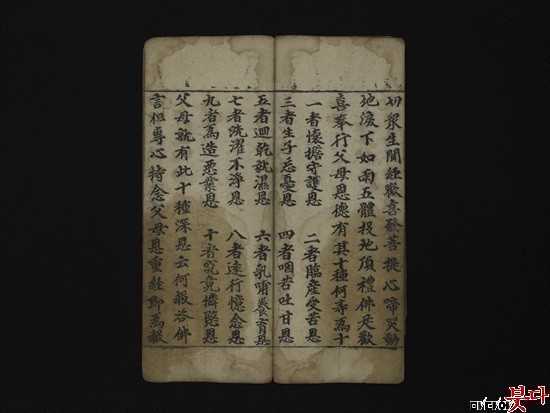 切衆生聞經歡喜發菩提心啼哭動
地淚下如雨五體投地頂禮佛足歡
喜奉行父母恩德有其十種何等爲十
一者懷擔守護恩 二者臨産受苦恩
三者生子忘憂恩 四者咽苦吐甘恩
五者迴乾就濕恩 六者乳哺養育恩
七者洗濯不淨恩 八者遠行憶念恩
九者爲造惡業恩 十者究竟憐愍恩
父母就有此十種深恩云何報答佛
言但專心持念父母恩重經即爲報
붓다